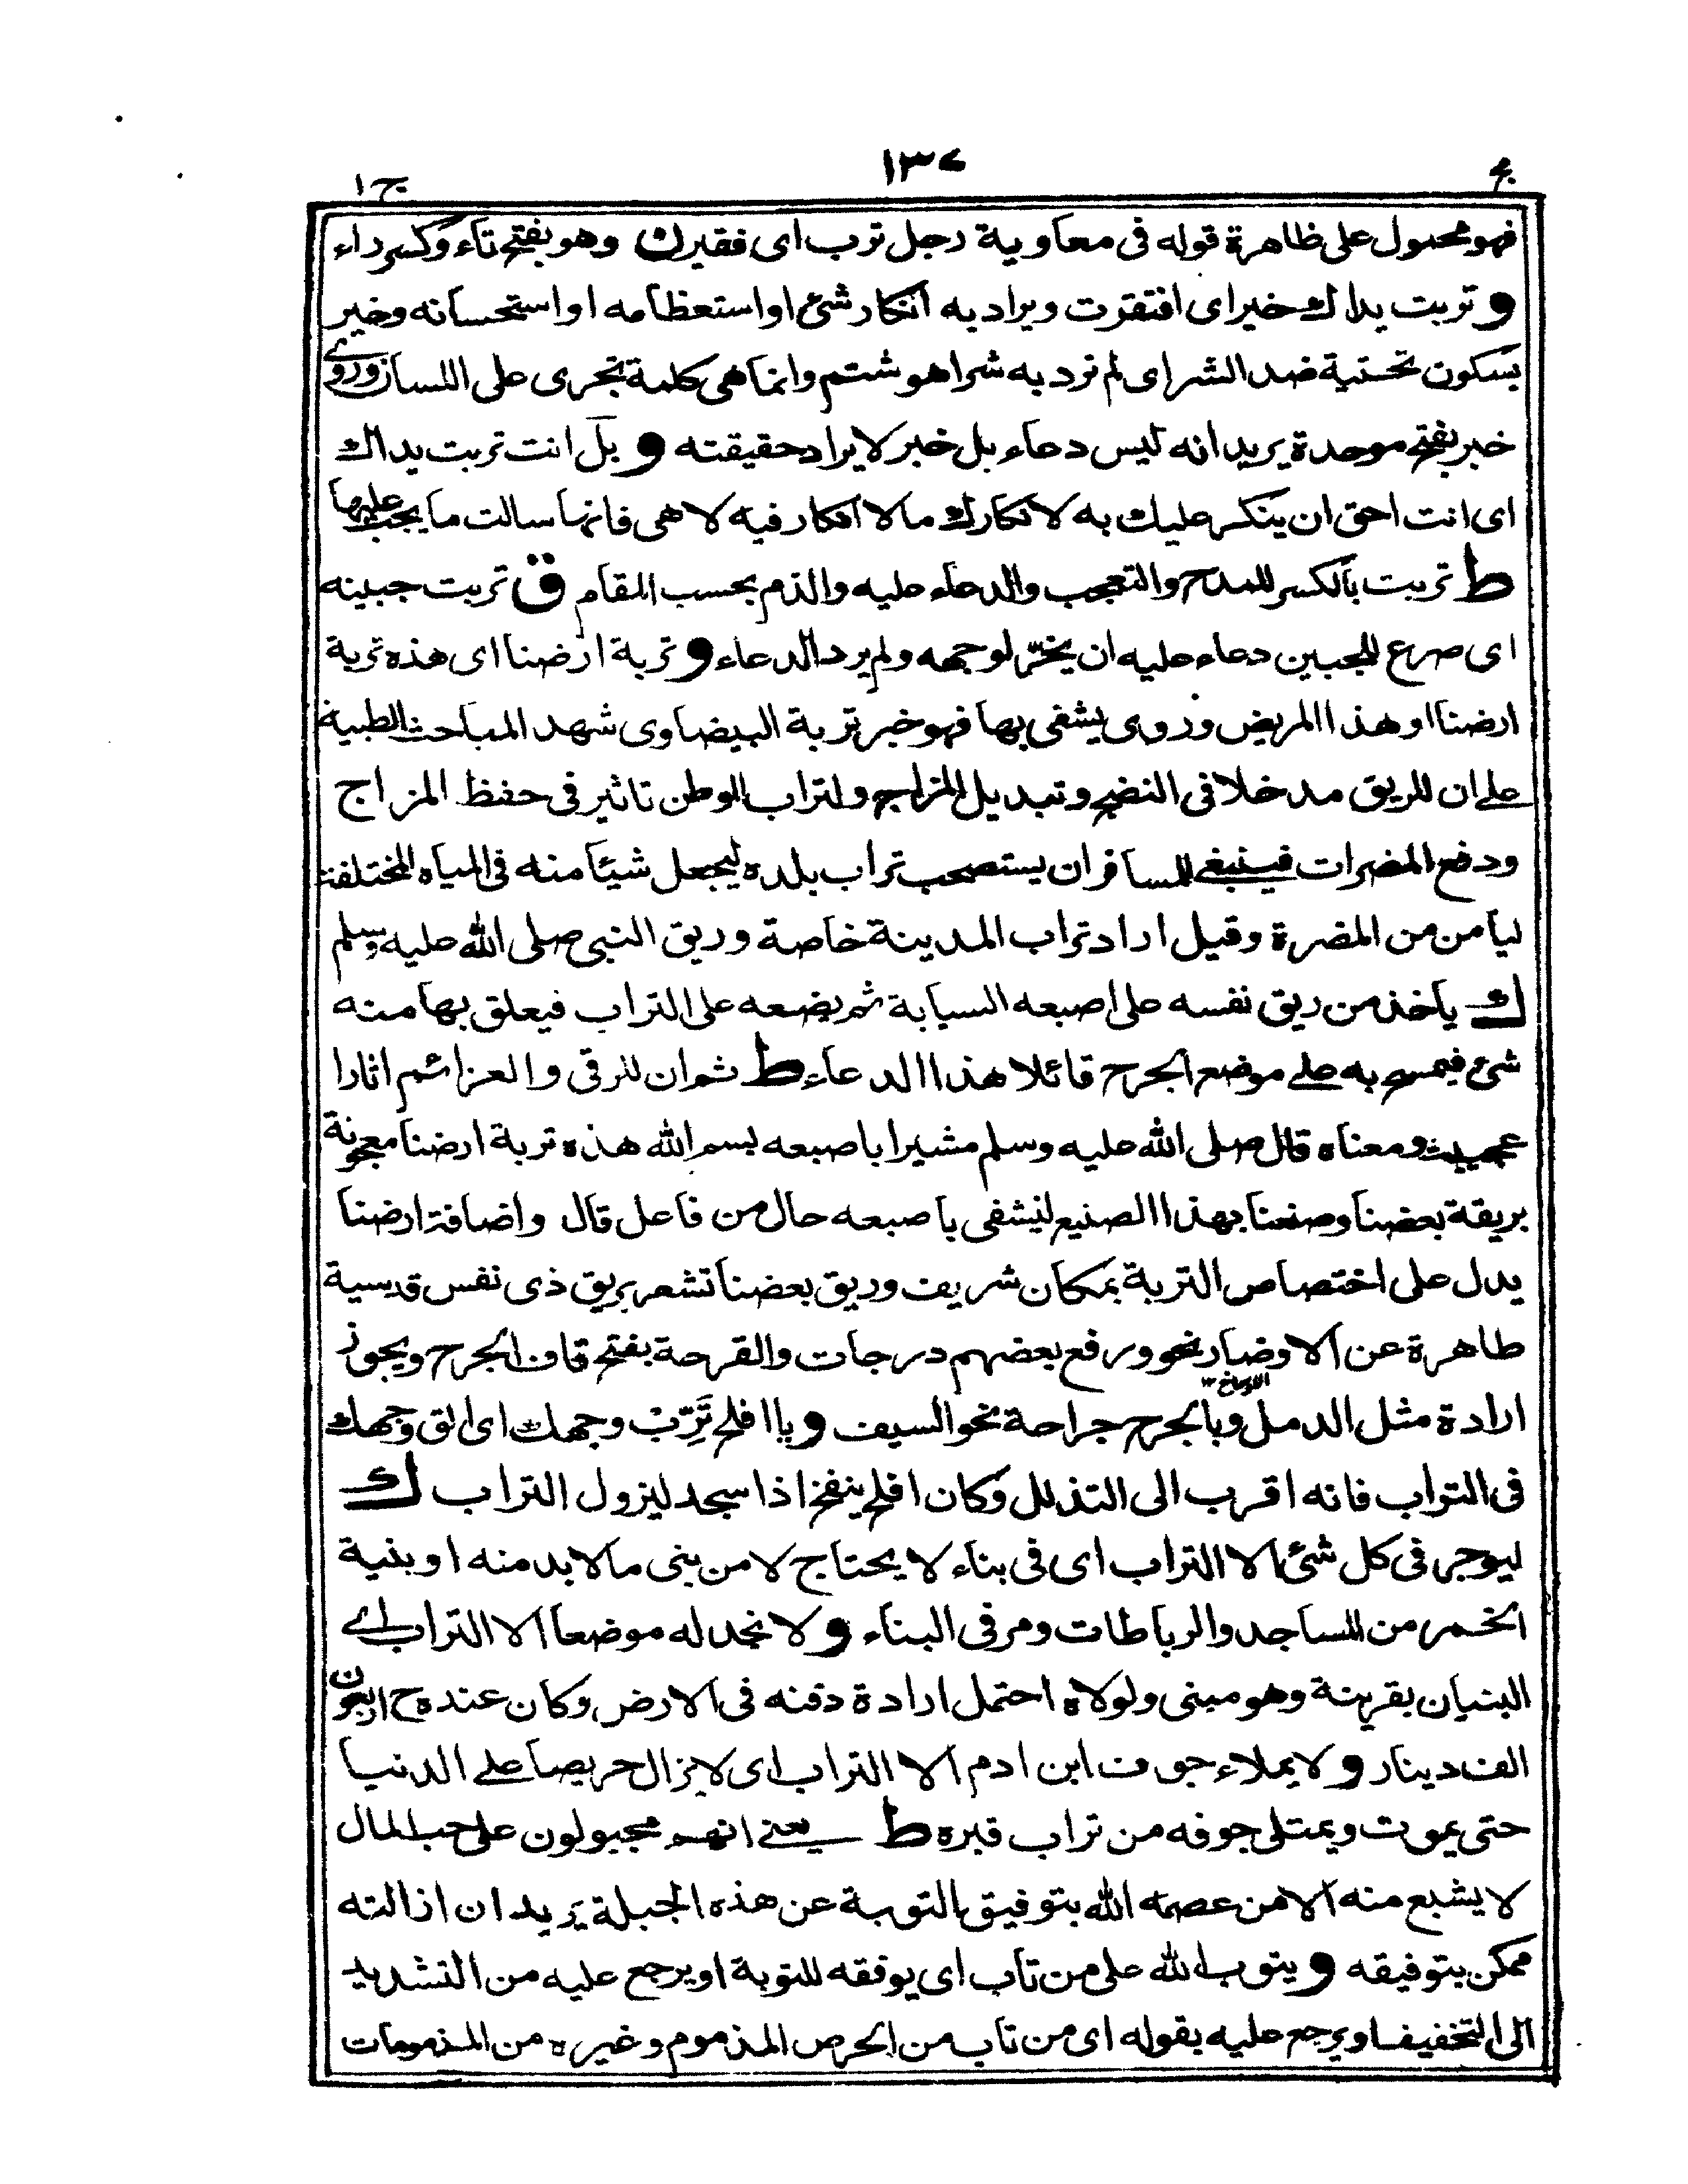 مج ١٣٧ ج ١
فهو محمول على ظاهرة قوله فى معاوية رجل ترب اى فقيرك وهو بفتح تاء وكسر راء
و تربت يداك خير اى افتقرت ويراد به انكار شئ او استعظامه او استحسانه وخير
بسكون تحتية ضد الشر اى لم ترد به شرا هو شتم وانما هى كلمة تجرى على اللسان وروى
خبر بفتح موحدة يريد انه ليس دعاء بل خبر لا يراد حقيقته و بل انت تربت يداك
اى انت احق ان ينكر عليك به لانكارك ما لا انكار فيه لا هى فانها سالت ما يجب عليها
ط تربت بالكسر للمدح والتعجب والدعاء عليه والذم بحسب المقام ق تربت جبينه
اى صرع للجبين دعاء عليه ان يخر لوجهه ولم يرد الدعاء و تربة ارضنا اى هذه تربة
ارضنا او هذا المريض وروى يشفى بها فهو خبر تربة البيضاوى شهد المباحث الطبية
على ان للريق مدخلا فى النضج وتبديل المزاج ولتراب الوطن تاثير فى حفظ المزاج
ودفع المضرات فينبغى للمسافر ان يستصحب تراب بلده ليجعل شيئا منه فى المياه المختلفة
ليأمن من المضرة وقيل اراد تراب المدينة خاصة وريق النبى صلى الله عليه وسلم
ك ياخذ من ريق نفسه على اصبعه السبابة ثم يضعه على التراب فيعلق بها منه
شئ فيمسح به على موضع الجرح قائلا هذا الدعاء ط ثم ان للرقى والعزائم اثارا
عجيبة ومعناه قال صلى الله عليه وسلم مشيرا باصبعه بسم الله هذه تربة ارضنا معجونة
بريقة بعضنا وصنعنا بهذا الصنيع ليشفى باصبعه حال من فاعل قال واضافة ارضنا
يدل على اختصاص التربة بمكان شريف وريق بعضنا تشعر بريق ذى نفس قدسية
طاهرة عن الاوضار نحو ورفع بعضهم درجات والقرحة بفتح قاف الجرح ويجوز
الاوساخ ١٢
ارادة مثل الدمل وبالجرح جراحة نحو السيف و يا افلح تَرِّبْ وجهك اى الق وجهك
فى التراب فانه اقرب الى التذلل وكان افلح ينفخ اذا سجد ليزول التراب ك
ليوجر فى كل شئ الا التراب اى فى بناء لا يحتاج لا من بنى ما لا بد منه او بنية
الخير من المساجد والرباطات ومر فى البناء و لا نجد له موضعا الا التراب اے
البنيان بقرينة وهو مبنى ولولاه احتمل ارادة دفنه فى الارض وكان عنده ح اربعون
الف دينار و لا يملاء جوف ابن ادم الا التراب اى لا يزال حريصا على الدنيا
حتى يموت ويمتلى جوفه من تراب قبره ط يعنے انهم مجبولون على حب المال
لا يشبع منه الا من عصمه الله بتوفيق بالتوبة عن هذه الجبلة يريد ان ازالته
ممكن بتوفيقه و يتوب الله على من تاب اى يوفقه للتوبة او يرجع عليه من التشديد
الى التخفيف او يرجع عليه بقوله اى من تاب من الحرص المذموم وغيره من المذمومات